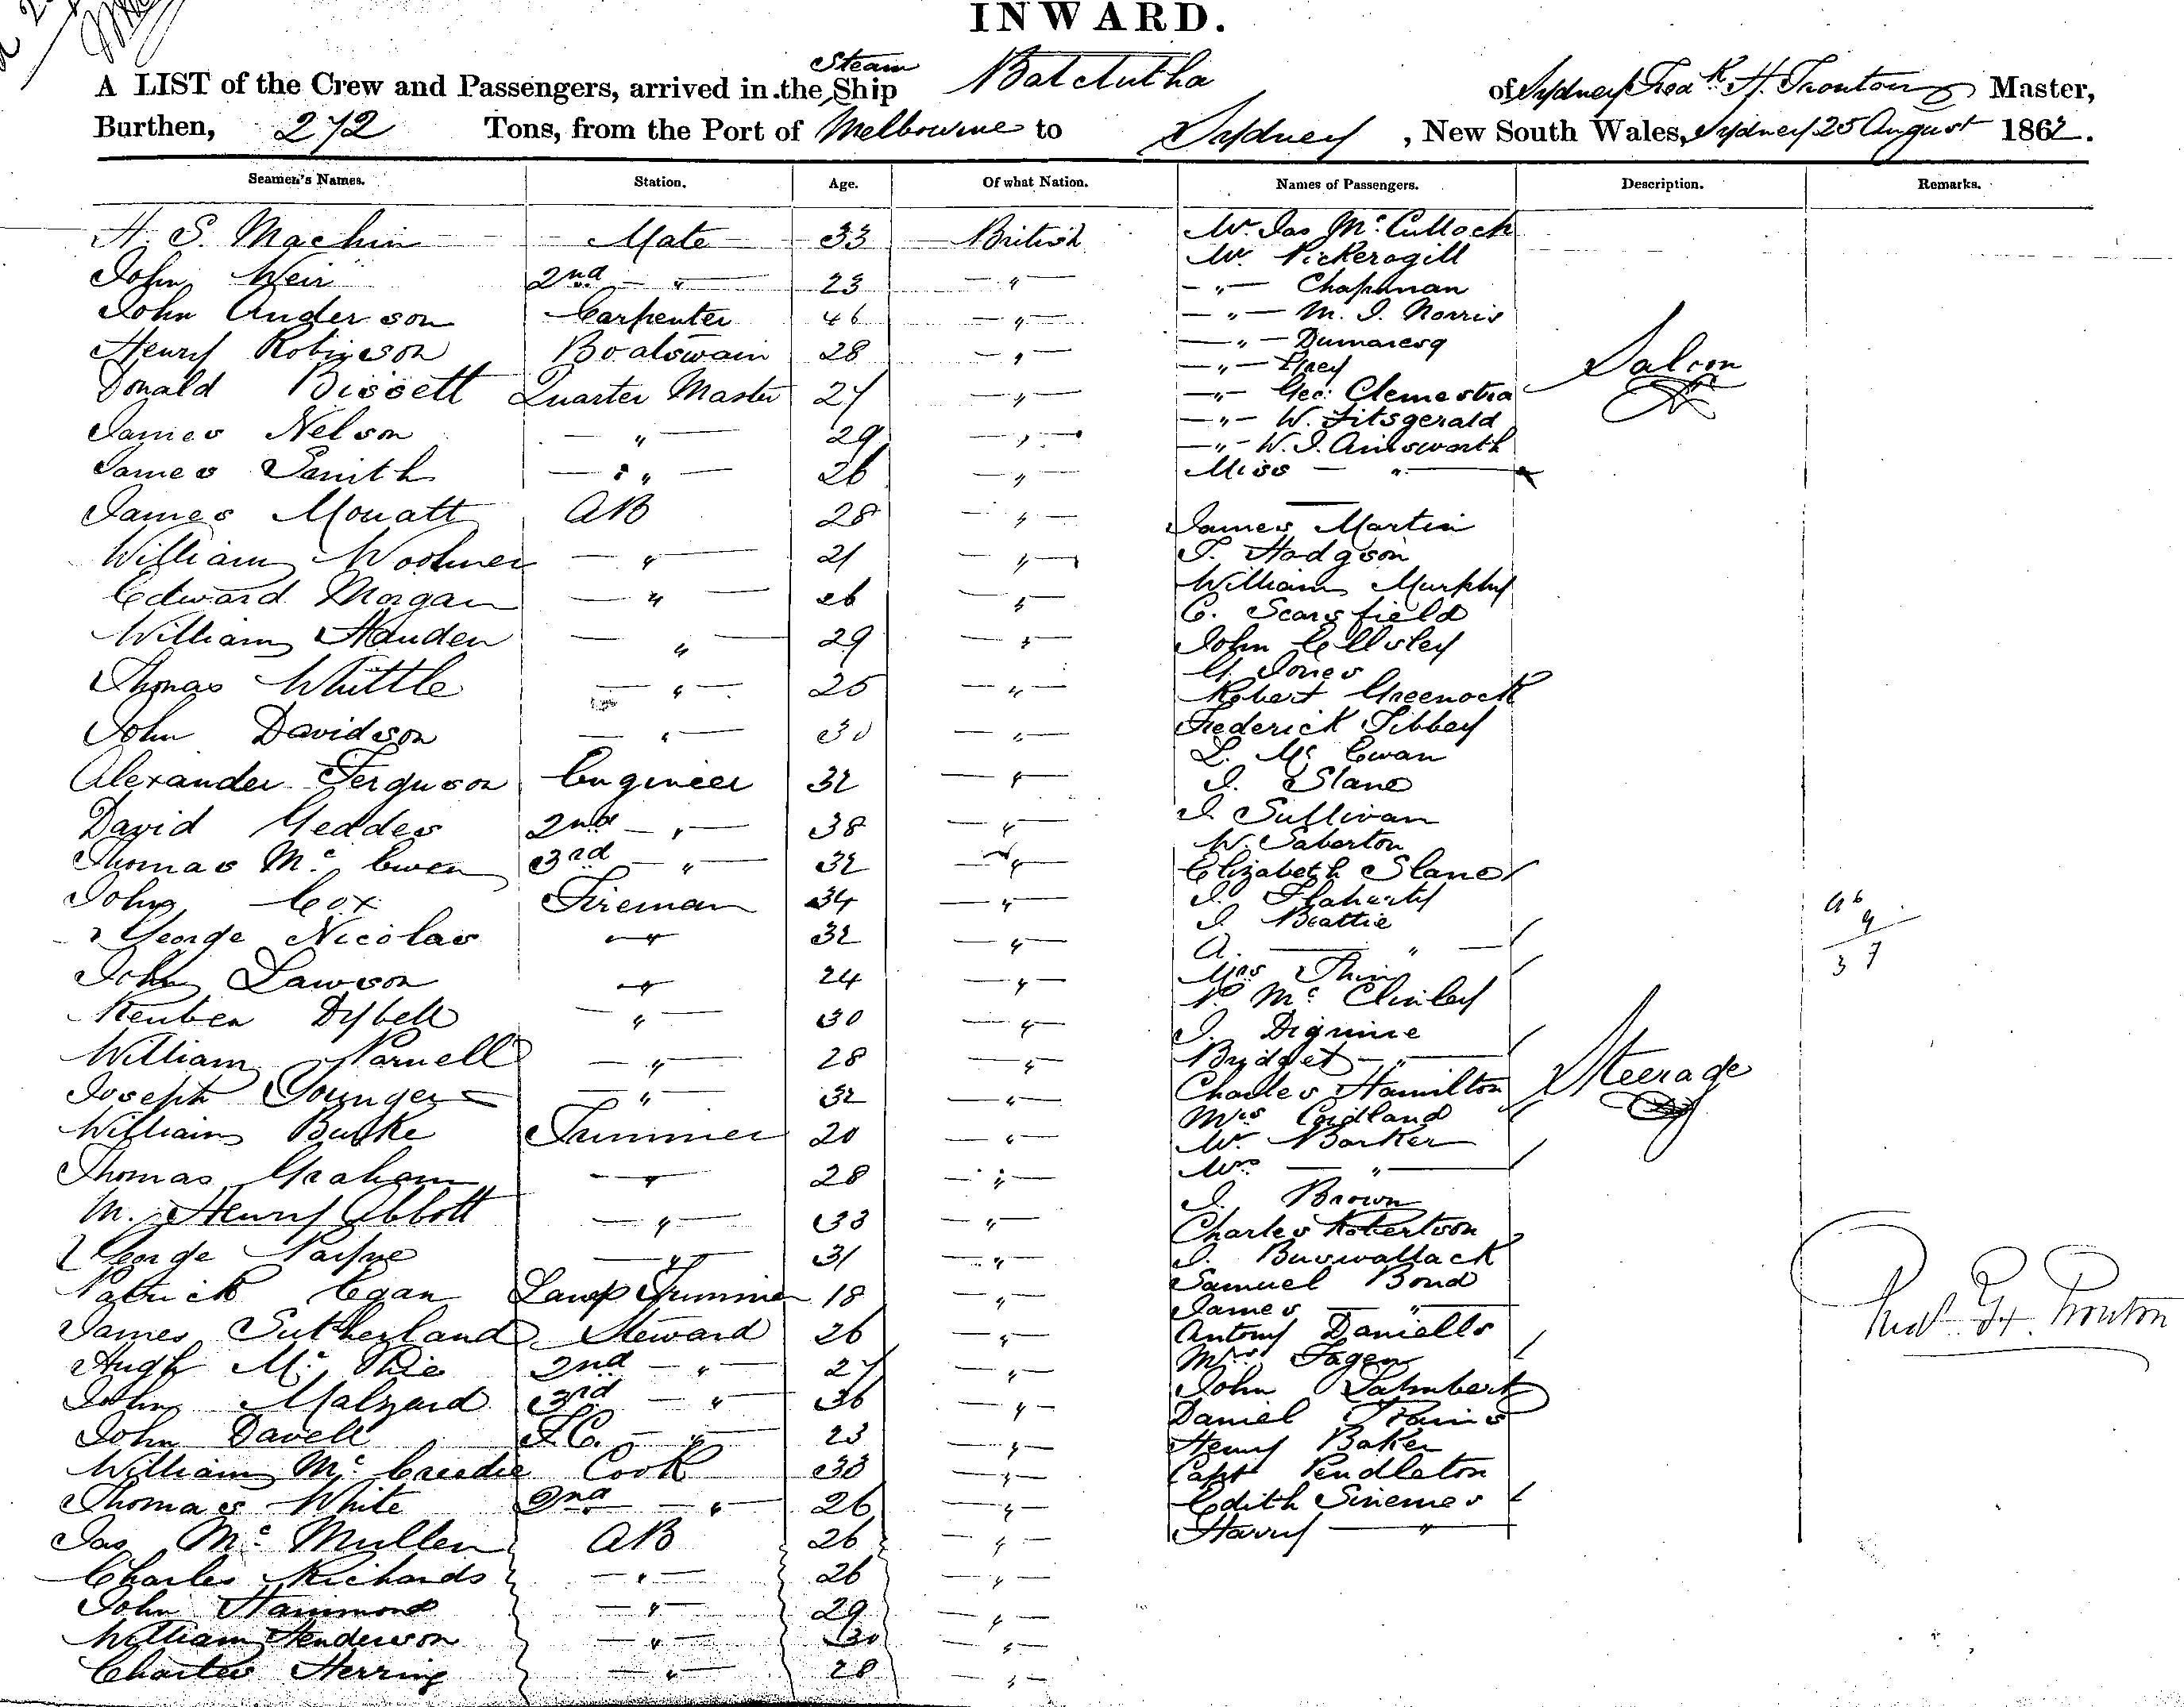 INWARD.
Steam
A LIST of the Crew and Passengers, arrived in the Ship Balclutha of Sydney Fredk H. Trouton Master,
Burthen, 272 Tons, from the Port of Melbourne to Sydney, New South Wales, Sydney 25 August 1862.
Seamen's Names. Station. Age. Of what Nation. Names of Passengers. Description. Remarks.
H. S. Machin Mate 33 British
John Weir 2nd " 23 "
John Anderson Carpenter 46 "
Henry Robinson Boatswain 28 "
Donald Bissett Quarter Master 27 "
James Nelson " 29 "
James Smith " 26 "
James Mouatt AB 28 "
William Woolmer " 21 "
Edward Morgan " 26 "
William Hauden " 29 "
Thomas Whittle " 25 "
John Davidson " 30 "
Alexander Ferguson Engineer 32 "
David Geddes 2nd " 38 "
Thomas Mc Ewen 3rd " 32 "
John Cox Fireman 34 "
George Nicolas " 32 "
John Lawson " 24 "
Reuben Dybell " 30 "
William Parnell " 28 "
Joseph Younger " 32 "
William Burke Trimmer 20 "
Thomas Graham " 28 "
M. Henry Abbott " 33 "
George Payne " 31 "
Patrick Egan Lamp Trimmer 18 "
James Sutherland Steward 26 "
Hugh Mc Phie 2nd " 27 "
John Malzard 3rd " 36 "
John Davell F.C. " 23 "
William Mc Creedie Cook 33 "
Thomas White 2nd " 26 "
Jas Mc Mullen AB 26 "
Charles Richards " 26 "
John Hammond " 29 "
William Henderson " 30 "
Charles Herring " 28 "
Mr. Jas Mc Culloch
Mr. Pickersgill
" Chapman
" M. J. Norris
" Dumaresq
" Grey
" Geo: Clemestra
" W. Fitsgerald
" W. J. Ainsworth
Miss "
Saloon
James Martin
T. Hodgson
William Murphy
C. Scarsfield
John Cellsley
G. Jones
Robert Greenock
Frederick Tibbey
L. Mc Ewan
J. Slane
J. Sullivan
W. Saberton
Elizabeth Slane
J. Flaharty
J. Beattie
A. "
Mrs Thin
P. Mc Clinley
J. Dignine
Bridget "
Charles Hamilton
Mrs Coidland
W. Barker
Mrs "
J. Brown
Charles Robertson
J. Buswallack
Samuel Bond
James "
Antony Daniells
Mrs Fagen
John Lambert
Daniel
Henry Baker
Capt Pendleton
Edith Sinemes
Harry "
Steerage
46
9
37
Fred H. Trouton